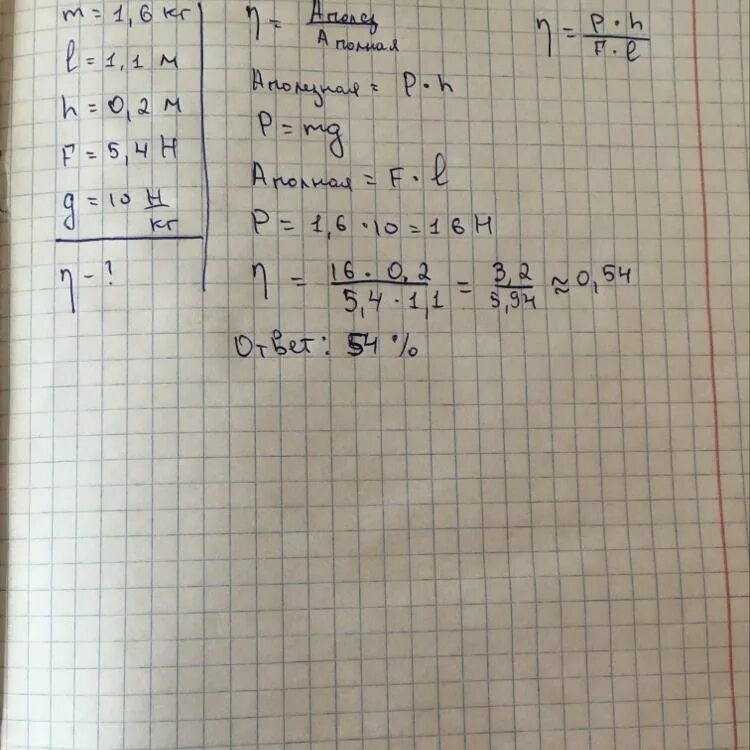 m = 1,6 кг
l = 1,1 м
h = 0,2 м
F = 5,4 Н
g = 10 Н/кг
η - ?
η = Aполез/Aполная
Aполезная = P · h
P = mg
Aполная = F · l
P = 1,6 · 10 = 16 Н
η = 16 · 0,2/5,4 · 1,1 = 3,2/5,94 ≈ 0,54
Ответ: 54 %
η = P · h/F · l